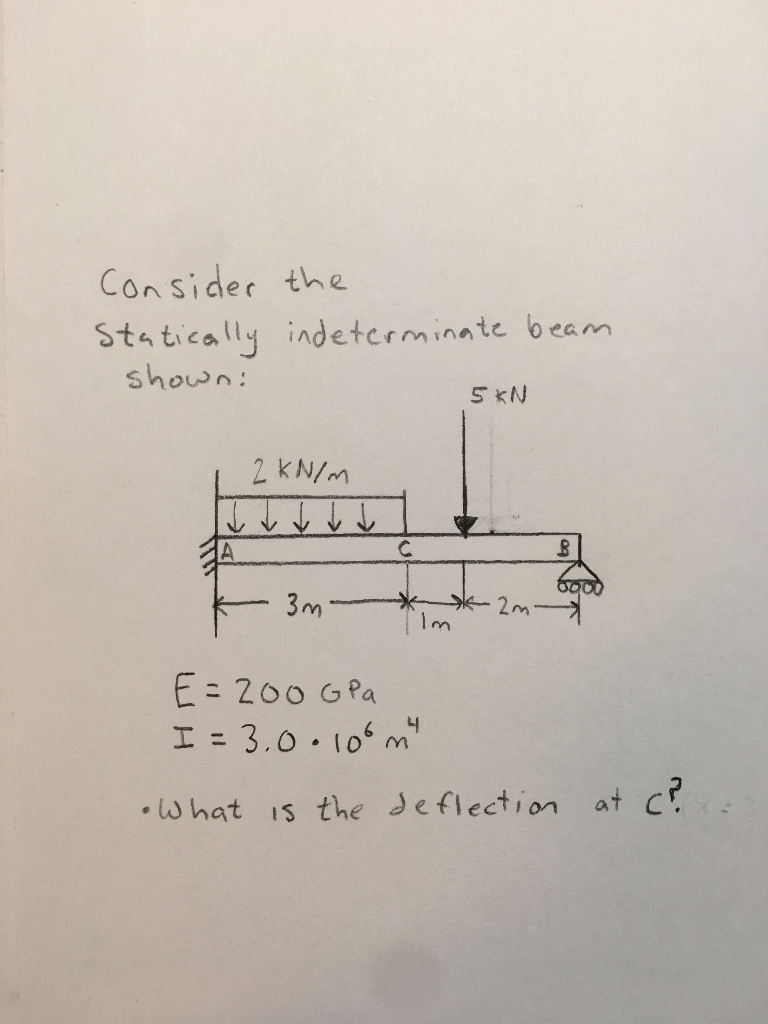 Consider the
Statically indeterminate beam
shown:
5 KN
2 KN/m
A C B
3m 1m 2m
E = 200 GPa
I = 3.0 • 10⁶ m⁴
• What is the deflection at C?